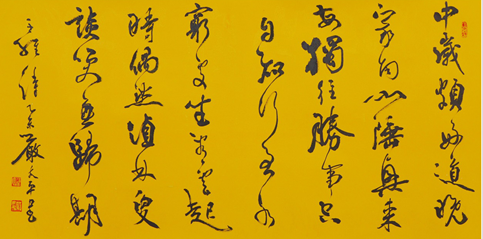 中歲頗好道晚
家南山陲興來
每獨往勝事空
自知行至水
窮處坐看雲起
時偶然值林叟
談笑無歸期
王維詩乙未嚴書